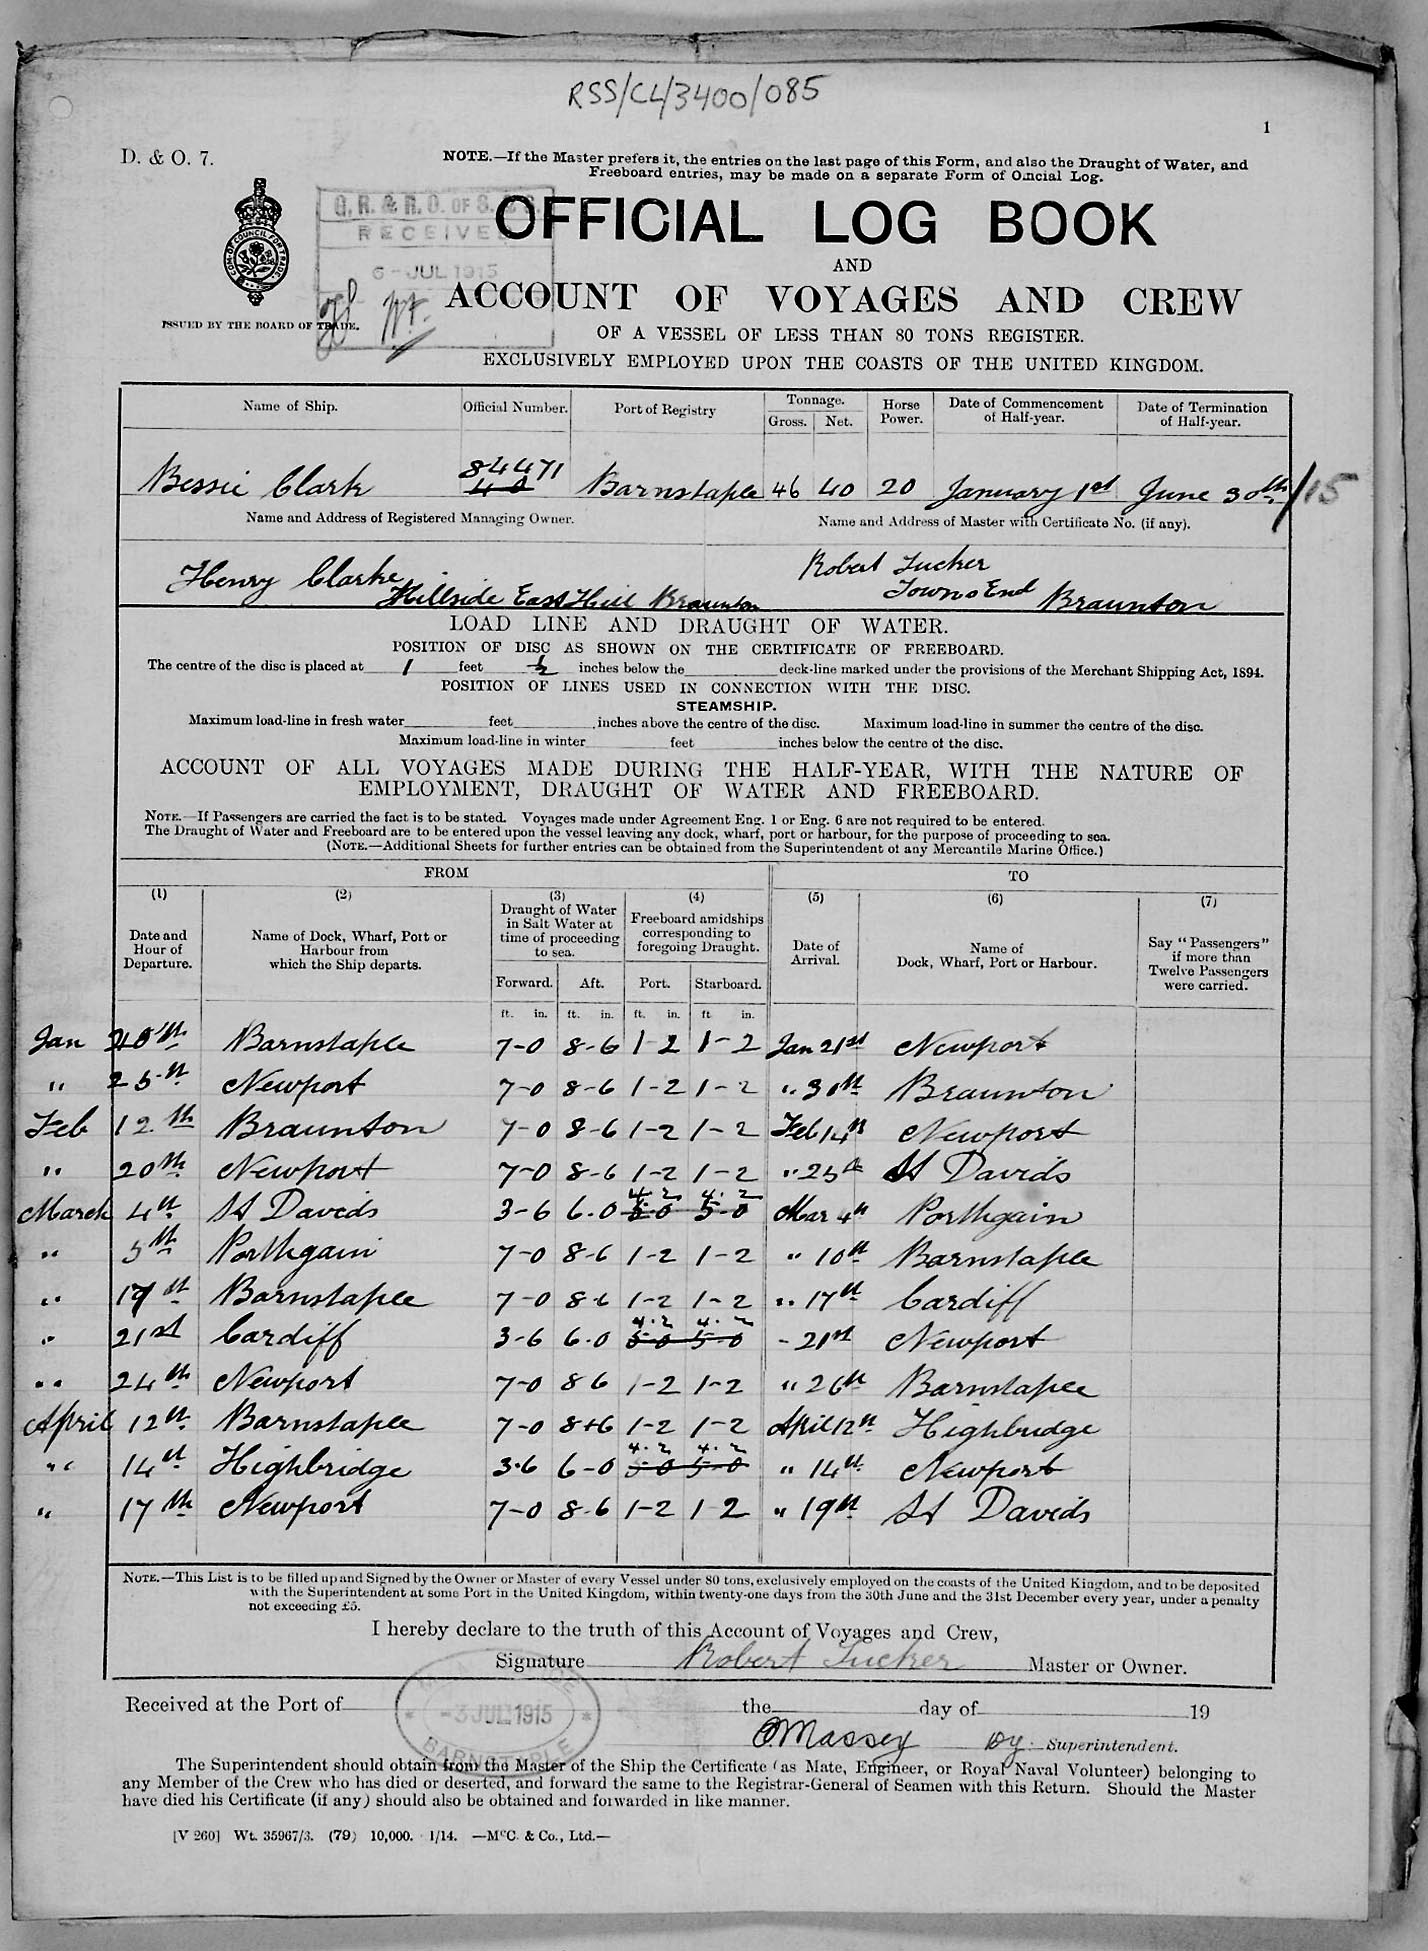 RSS/CL/3400/085
1
D. & O. 7.
NOTE.—If the Master prefers it, the entries on the last page of this Form, and also the Draught of Water, and
Freeboard entries, may be made on a separate Form of Official Log.
G. R. & R. O. OF S. & S.
RECEIVED
6-JUL 1915
OFFICIAL LOG BOOK
AND
ACCOUNT OF VOYAGES AND CREW
ISSUED BY THE BOARD OF TRADE.
OF A VESSEL OF LESS THAN 80 TONS REGISTER.
EXCLUSIVELY EMPLOYED UPON THE COASTS OF THE UNITED KINGDOM.
Name of Ship. Official Number. Port of Registry Tonnage. Gross. Net. Horse Power. Date of Commencement of Half-year. Date of Termination of Half-year.
Bessie Clark 84471 40 Barnstaple 46 40 20 January 1st June 30th/15
Name and Address of Registered Managing Owner. Name and Address of Master with Certificate No. (if any).
Henry Clarke Hillside East Hill Braunton
Robert Tucker Towns End Braunton
LOAD LINE AND DRAUGHT OF WATER.
POSITION OF DISC AS SHOWN ON THE CERTIFICATE OF FREEBOARD.
The centre of the disc is placed at 1 feet ½ inches below the deck-line marked under the provisions of the Merchant Shipping Act, 1894.
POSITION OF LINES USED IN CONNECTION WITH THE DISC.
STEAMSHIP.
Maximum load-line in fresh water feet inches above the centre of the disc. Maximum load-line in summer the centre of the disc.
Maximum load-line in winter feet inches below the centre of the disc.
ACCOUNT OF ALL VOYAGES MADE DURING THE HALF-YEAR, WITH THE NATURE OF
EMPLOYMENT, DRAUGHT OF WATER AND FREEBOARD.
NOTE.—If Passengers are carried the fact is to be stated. Voyages made under Agreement Eng. 1 or Eng. 6 are not required to be entered.
The Draught of Water and Freeboard are to be entered upon the vessel leaving any dock, wharf, port or harbour, for the purpose of proceeding to sea.
(NOTE.—Additional Sheets for further entries can be obtained from the Superintendent of any Mercantile Marine Office.)
FROM TO
(1) (2) (3) (4) (5) (6) (7)
Date and Hour of Departure. Name of Dock, Wharf, Port or Harbour from which the Ship departs. Draught of Water in Salt Water at time of proceeding to sea. Freeboard amidships corresponding to foregoing Draught. Date of Arrival. Name of Dock, Wharf, Port or Harbour. Say "Passengers" if more than Twelve Passengers were carried.
Forward. Aft. Port. Starboard.
ft. in. ft. in. ft. in. ft in.
Jan 20th Barnstaple 7-0 8-6 1-2 1-2 Jan 21st Newport
" 25th Newport 7-0 8-6 1-2 1-2 " 30th Braunton
Feb 12th Braunton 7-0 8-6 1-2 1-2 Feb 14th Newport
" 20th Newport 7-0 8-6 1-2 1-2 " 25th St Davids
4.2 4.2
March 4th St Davids 3-6 6.0 5.0 5-0 Mar 4th Porthgain
" 5th Porthgain 7-0 8-6 1-2 1-2 " 10th Barnstaple
" 17th Barnstaple 7-0 8-6 1-2 1-2 " 17th Cardiff
4.2 4.2
" 21st Cardiff 3-6 6.0 5-0 5-0 - 21st Newport
" 24th Newport 7-0 8 6 1-2 1-2 " 26th Barnstaple
April 12th Barnstaple 7-0 8+6 1-2 1-2 April 12th Highbridge
4.2 4.2
" 14th Highbridge 3.6 6-0 5-0 5-0 " 14th Newport
" 17th Newport 7-0 8-6 1-2 1 2 " 19th St Davids
NOTE.—This List is to be filled up and Signed by the Owner or Master of every Vessel under 80 tons, exclusively employed on the coasts of the United Kingdom, and to be deposited
with the Superintendent at some Port in the United Kingdom, within twenty-one days from the 30th June and the 31st December every year, under a penalty
not exceeding £5.
I hereby declare to the truth of this Account of Voyages and Crew,
Signature Robert Tucker Master or Owner.
Received at the Port of the day of 19
-3 JUL 1915
BARNSTAPLE
Massey Dy. Superintendent.
The Superintendent should obtain from the Master of the Ship the Certificate (as Mate, Engineer, or Royal Naval Volunteer) belonging to
any Member of the Crew who has died or deserted, and forward the same to the Registrar-General of Seamen with this Return. Should the Master
have died his Certificate (if any) should also be obtained and forwarded in like manner.
[V 260] Wt. 35967/3. (79) 10,000. 1/14. —McC. & Co., Ltd.—